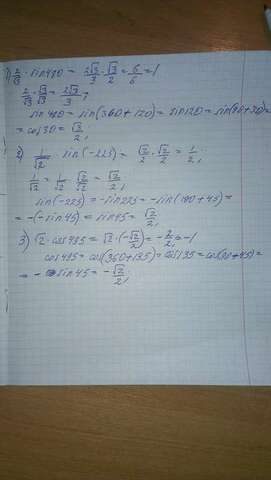 1) 2/√3 · sin480 = 2√3/3 · √3/2 = 6/6 = 1
2/√3 · √3/√3 = 2√3/3;
sin480 = sin(360+120) = sin120 = sin(90+30) =
= cos30 = √3/2;
2) 1/√2 sin(-225) = √2/2 · √2/2 = 1/2;
1/√2 = 1/√2 · √2/√2 = √2/2;
sin(-225) = -sin225 = -sin(180+45) =
= -(-sin45) = sin45 = √2/2
3) √2 · cos495 = √2 · (-√2/2) = -2/2 = -1
cos495 = cos(360+135) = cos135 = cos(90+45) =
= - sin45 = -√2/2;